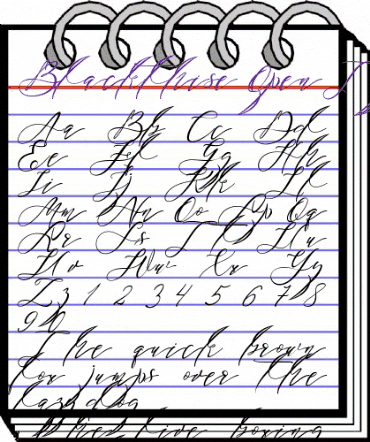 Blackthose Open T
Aa Bb Cc Dd
Ee Ff Gg Hh
Ii Jj Kk Ll
Mm Nn Oo Pp Qq
Rr Ss Tt Uu
Vv Ww Xx Yy
Zz 1 2 3 4 5 6 7 8
9 0
The quick brown
fox jumps over the
lazy dog
The five boxing